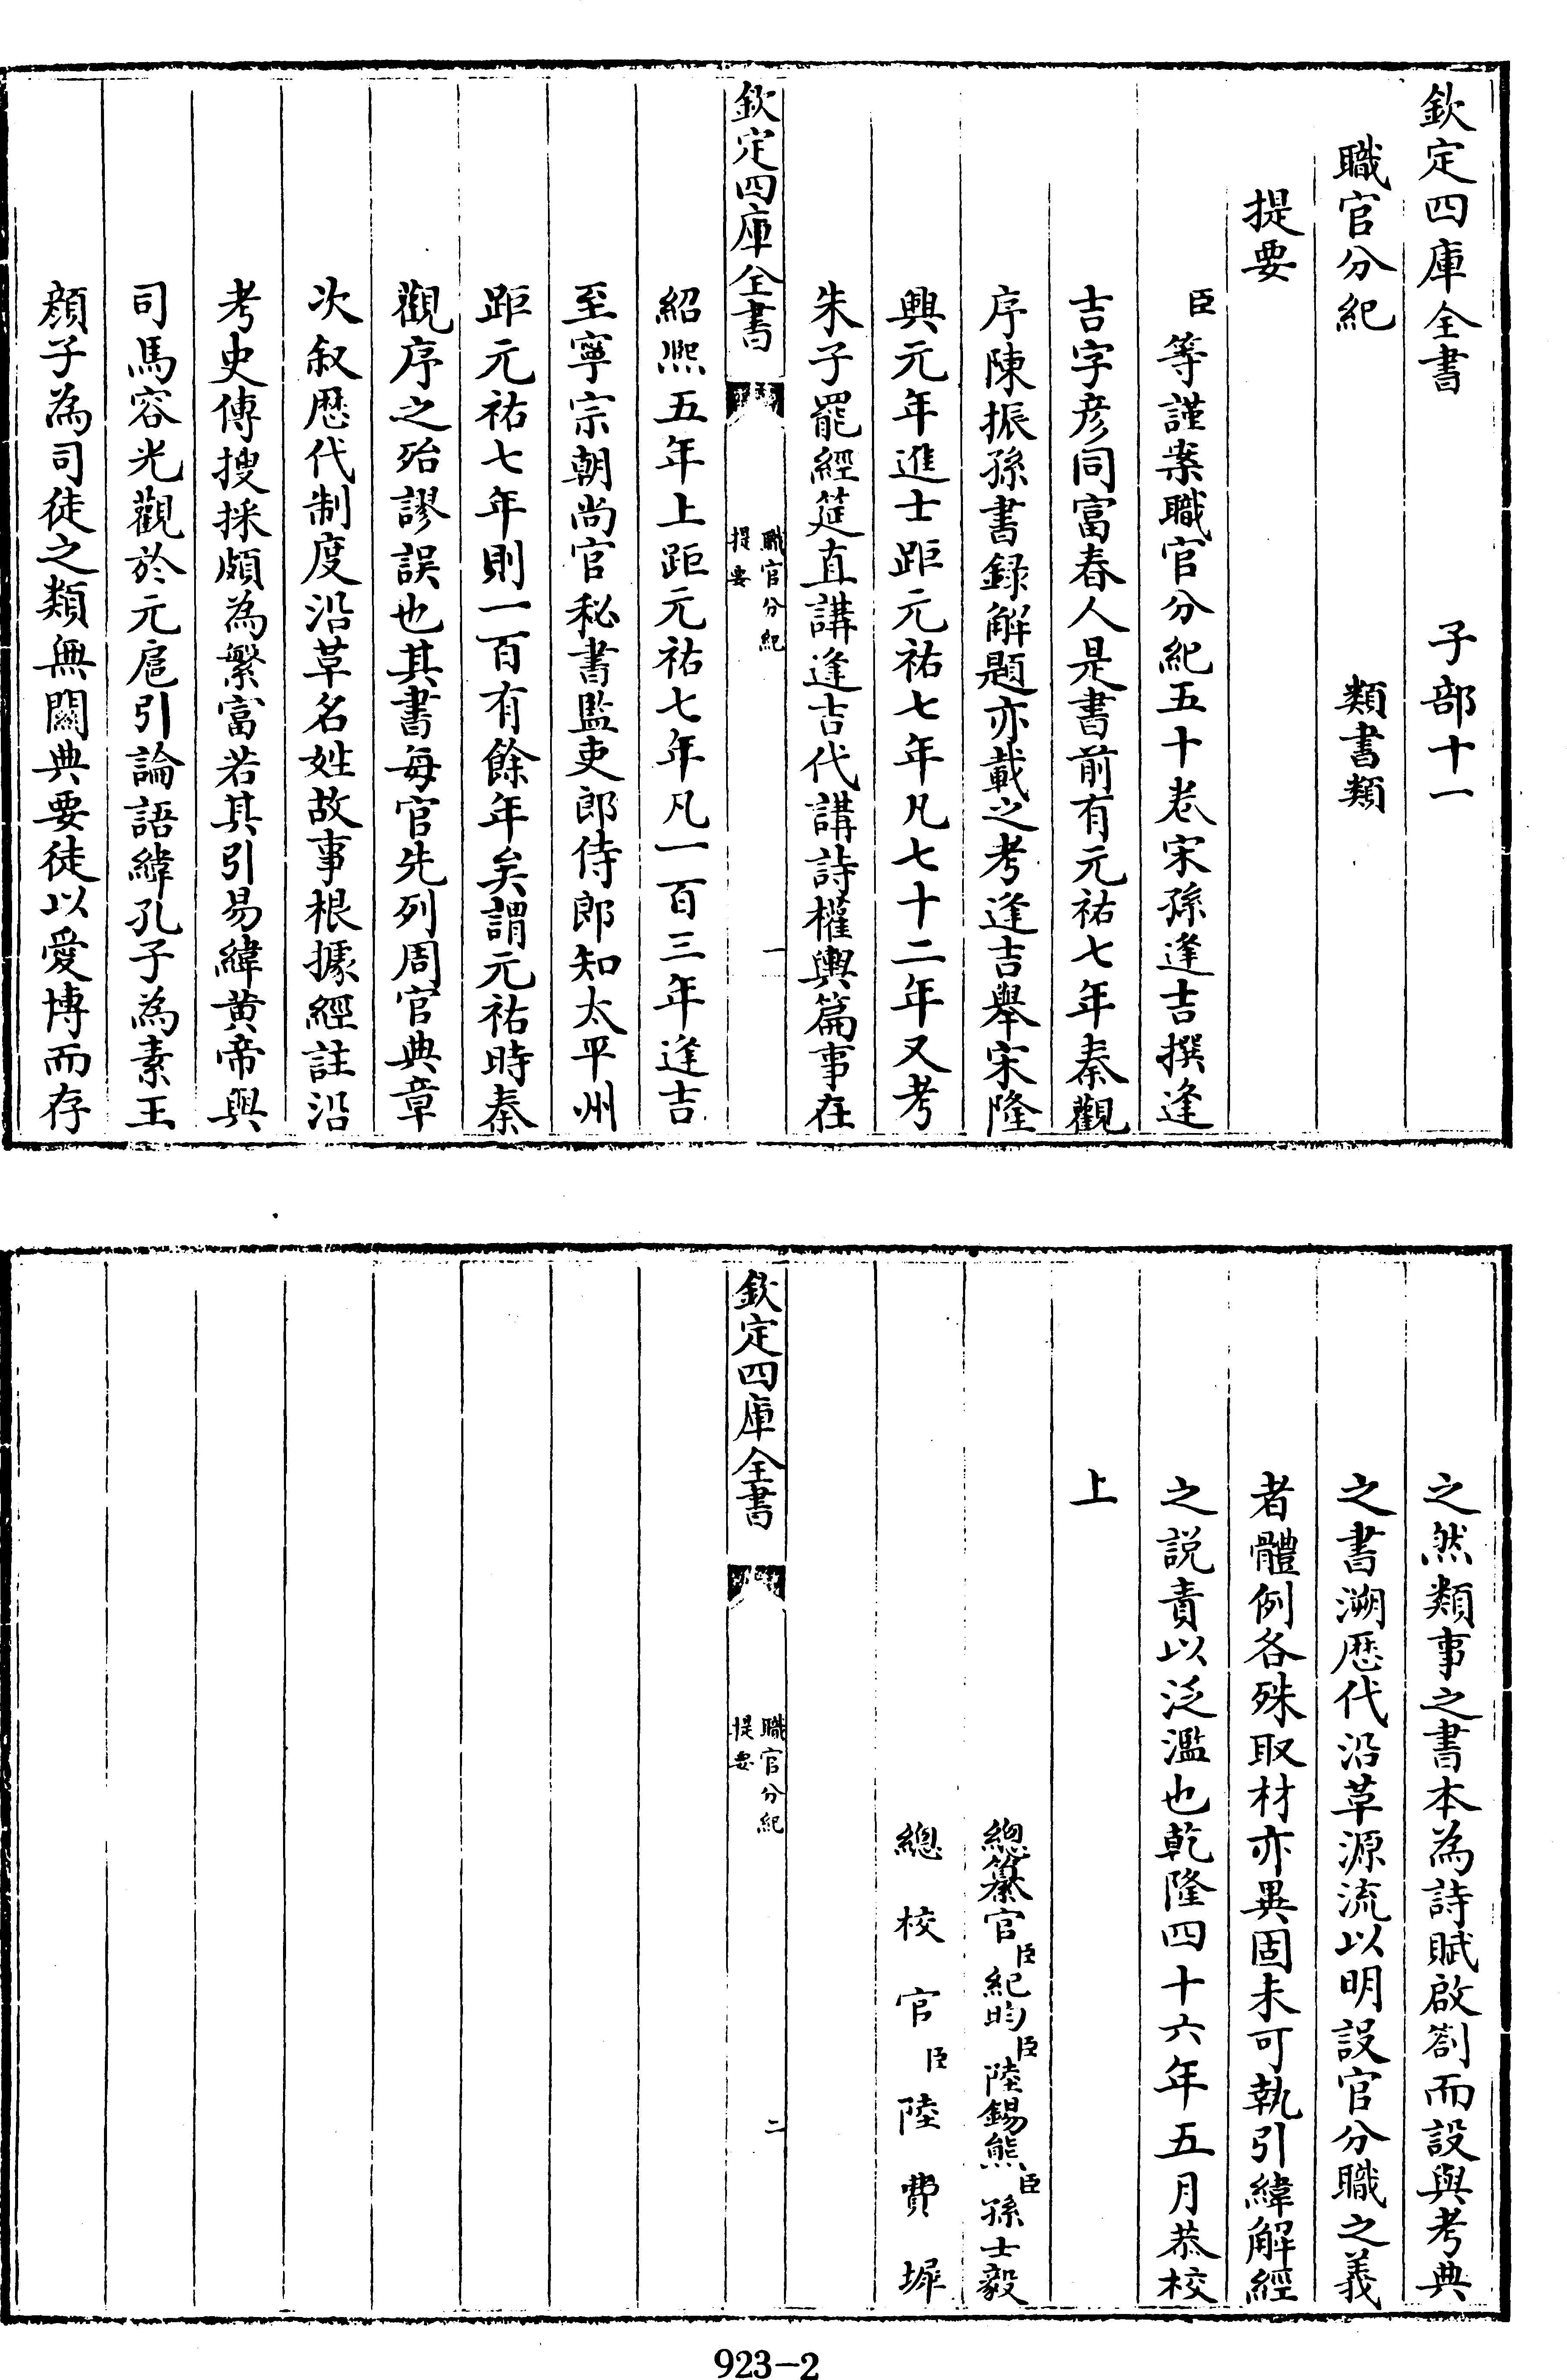 欽定四庫全書　子部十一
職官分紀　類書類
提要
臣等謹案職官分紀五十卷宋孫逢吉撰逢
吉字彦同富春人是書前有元祐七年秦觀
序陳振孫書録解題亦載之考逢吉舉宋隆
興元年進士距元祐七年凡七十二年又考
朱子罷經筵直講逢吉代講詩權輿篇事在
欽定四庫全書
職官分紀
提要
一
紹熈五年上距元祐七年凡一百三年逢吉
至寧宗朝尚官秘書監吏郎侍郎知太平州
距元祐七年則一百有餘年矣謂元祐時秦
觀序之殆謬誤也其書每官先列周官典章
次叙歴代制度沿革名姓故事根據經註沿
考史傳搜採頗為繁富若其引易緯黄帝與
司馬容光觀於元扈引論語緯孔子為素王
顔子為司徒之類無關典要徒以愛博而存
之然類事之書本為詩賦啟劄而設與考典
之書溯歴代沿革源流以明設官分職之義
者體例各殊取材亦異固未可執引緯解經
之説責以泛濫也乾隆四十六年五月恭校
上
總纂官臣紀昀臣陸錫熊臣孫士毅
總校官臣陸費墀
欽定四庫全書
職官分紀
提要
二
923-2